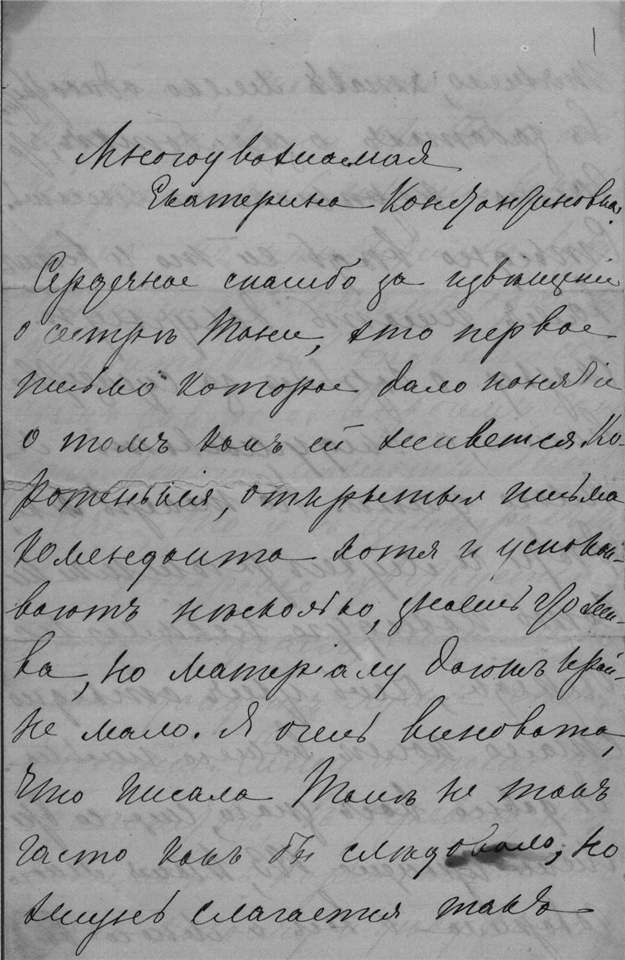 1
Многоуважаемая
Екатерина Константиновна!
Сердечное спасибо за извѣщеніе
о сестрѣ Тони, это первое
письмо которое дало понятіе
о томъ какъ ей живется. Ко-
ротенькія, открытыя письма
коменданта хотя и успокаи-
ваютъ нѣсколько, знаешь что жи-
ва, но матеріалу даютъ край-
не мало. Я очень виновата,
что писала Тонѣ не такъ
часто какъ бы слѣдовало, но
жизнь слагается такъ